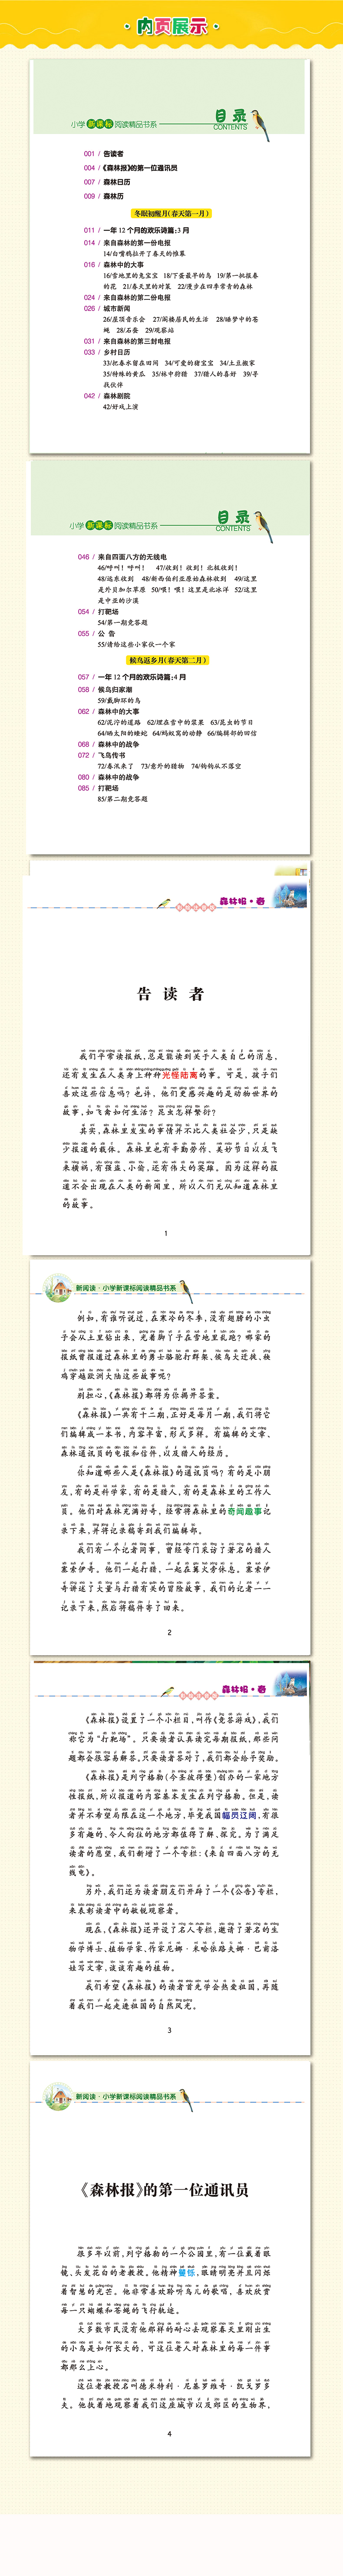 内页展示
小学新课标阅读精品书系
目录
CONTENTS
001 / 告读者
004 /《森林报》的第一位通讯员
007 / 森林日历
009 / 森林历
冬眠初醒月(春天第一月)
011 / 一年 12 个月的欢乐诗篇:3 月
014 / 来自森林的第一份电报
14/白嘴鸦拉开了春天的帷幕
016 / 森林中的大事
16/雪地里的兔宝宝 18/下蛋最早的鸟 19/第一批报春
的花 21/春天里的对策 22/漫步在四季常青的森林
024 / 来自森林的第二份电报
026 / 城市新闻
26/屋顶音乐会 27/阁楼居民的生活 28/睡梦中的苍
蝇 28/石蚕 29/观察站
031 / 来自森林的第三封电报
033 / 乡村日历
33/把春水留在田间 34/可爱的猪宝宝 34/土豆搬家
35/特殊的黄瓜 35/林中狩猎 37/猎人的喜好 39/寻
找伙伴
042 / 森林剧院
42/好戏上演
小学新课标阅读精品书系
目录
CONTENTS
046 / 来自四面八方的无线电
46/呼叫!呼叫! 47/收到!收到!北极收到!
48/远东收到 48/新西伯利亚原始森林收到 49/这里
是外贝加尔草原 50/喂!喂!这里是北冰洋 52/这里
是中亚的沙漠
054 / 打靶场
54/第一期竞答题
055 / 公 告
55/请给这些小家伙一个家
候鸟返乡月(春天第二月)
057 / 一年 12 个月的欢乐诗篇:4 月
059 / 候鸟归家潮
59/戴脚环的鸟
062 / 森林中的大事
62/泥泞的道路 62/埋在雪中的浆果 63/昆虫的节日
64/晒太阳的蝰蛇 64/蚂蚁窝的动静 66/编辑部的回信
068 / 森林中的战争
072 / 飞鸟传书
72/春汛来了 73/意外的猎物 74/钩钩从不落空
080 / 森林中的战争
085 / 打靶场
85/第二期竞答题
森林报·春
告读者
我们平常读报纸,总是能读到关于人类自己的消息,
还有发生在人类身上种种光怪陆离的事。可是,孩子们
喜欢这些信息吗?也许,他们更感兴趣的是动物世界的
故事,如飞禽如何生活?昆虫怎样繁衍?
其实,森林里发生的事情并不比人类社会少,只是缺
少报道的载体。森林里也有辛勤劳作、美妙节日以及飞
来横祸,有强盗、小偷,还有伟大的英雄。因为这样的报
道不会出现在人类的新闻里,所以人们无从知道森林里
的故事。
1
新阅读·小学新课标阅读精品书系
例如,有谁听说过,在寒冷的冬季,没有翅膀的小虫
子会从土里钻出来,光着脚丫子在雪地里疯跑?哪家的
报纸曾报道过森林里的勇士骆驼打群架、候鸟大迁徙、秧
鸡穿越欧洲大陆这些故事呢?
别担心,《森林报》都将为你揭开答案。
《森林报》一共有十二期,正好是每月一期,我们将它
们编辑成一本书,内容丰富,形式多样。有编辑的文章、
森林通讯员的电报和信件,以及猎人的报历。
你知道哪些人是《森林报》的通讯员吗?有的是小朋
友,有的是科学家,有的是猎人,有的是森林里的工作人
员。他们对森林充满好奇,经常将森林里的奇闻趣事记
录下来,并将记录稿寄到我们编辑部。
我们有一个记者同事,曾经专门采访了著名的猎人
塞索伊奇。他们一起打猎,一起在篝火旁休息。塞索伊
奇讲述了大量与打猎有关的冒险故事,我们的记者一一
记录下来,然后将稿件寄了回来。
2
森林报·春
《森林报》设置了一个小栏目,叫作《竞答游戏》,我们
称它为“打靶场”。只要读者认真读完每期报纸,那些问
题都会很容易解答。只要读者答对了,我们都会给予奖励。
《森林报》是列宁格勒(今圣彼得堡)创办的一家地方
性报纸,所以报道的内容基本发生在列宁格勒。但是,读
者并不希望局限在这一个地方,毕竟我国幅员辽阔,有很
多有趣的、令人向往的地方都值得了解、探究。为了满足
读者的愿望,我们新增了一个专栏:《来自四面八方的无
线电》。
另外,我们还为读者朋友们开辟了一个《公告》专栏,
来表彰读者中的敏锐观察者。
现在,《森林报》还开设了名人专栏,邀请了著名的生
物学博士、植物学家、作家尼娜·米哈依路夫娜·巴甫洛
娃写文章,谈谈有趣的植物。
我们希望《森林报》的读者首先学会热爱祖国,再随
着我们一起走进祖国的自然风光。
3
新阅读·小学新课标阅读精品书系
《森林报》的第一位通讯员
很多年以前,列宁格勒的一个公园里,有一位戴着眼
镜、头发花白的老教授。他精神矍铄,眼睛明亮并且闪烁
着智慧的光芒。他非常喜欢聆听鸟儿的歌唱、喜欢欣赏
每一只蝴蝶和苍蝇的飞行轨迹。
大多数市民没有他那样的耐心去观察春天里刚出生
的小鸟是如何长大的,可这位老人对森林里的每一件事
都那么上心。
这位老教授名叫德米特利·尼基罗维奇·凯戈罗多
夫。他执着地观察着我们这座城市以及郊区的生物界,
4